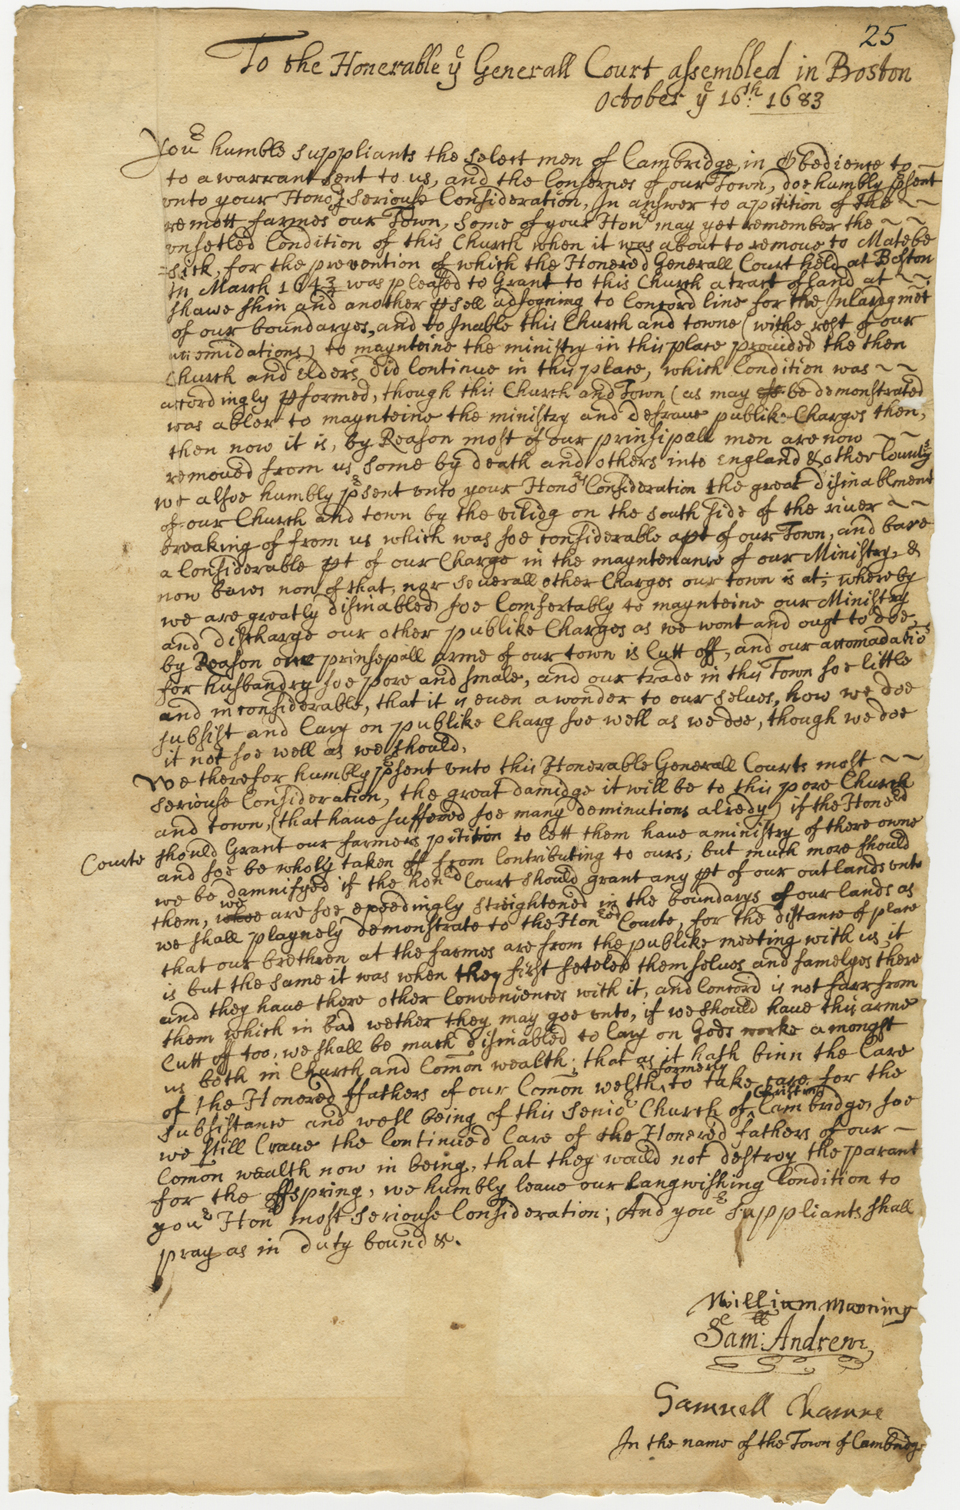 25
To the Honerable yͤ Generall Court assembled in Boston
October yͤ 16th: 1683
Youͬ humble suppliants the select men of Cambridge, in Obedience to ~
to a warrant sent to us, and the Consernes of our Town, doe humbly p̲sent
vnto your Honoͬs Seriouse Consideration, In answer to a pitition of the ~~
remott farmes our Town, Some of your Honͬ may yet remember the ~~
vnsetled Condition of this Church when it was about to remoue to Matebe
=sick, for the prevention of which the Honered Generall Court held at Boston
in March 1643 was pleased to Grant to this Church a tract of land at ~~
shawe shin and another p̲sell adjoyning to Concord line for the Inlargmēt
of our boundaryes, and to Inable this Church and towne (withe rest of our
accomidations) to maynteine the ministry in this place provided the then
Church and elders did Continue in this place, which Condition was ~~
accordingly p̲formed, though this Church and Town (as may be demonstrated
was abler to maynteine the ministry and defraue publik Charges then,
then now it is, by Reason most of our prinsipall men are now ~~
remoued from us some by death and others into England & other Countyͤs
we alsoe humbly p̲sent vnto your Honoͬs Consideration the great disinablment
of our Church and town by the vilidg on the south side of the riuer ~~
breaking of from us which was soe considerable a p̲t of our Town, and bare
a Considerable p̲t of our Charge in the mayntenance of our Ministry, &
now bares non of that, nor seuerall other Charges our town is at; whereby
we are greatly disinabled soe Comfortably to maynteine our Ministry
and discharge our other publike Charges as we wont and ought to doe
by Reason one prinsepall arme of our town is Cutt off, and our accomadatiōs
for husbandry soe pore and smale, and our trade in this Town soe little
and inconsiderable, that it is even a wonder to our selues, how we doe
subsist and Cary on publike Charg soe well as we doe, though we doe
it not soe well as we should,
We therefor humbly p̲sent vnto this Honorable Generall Courts most ~~
Seriouse Consideration, the great damidge it will be to this pore Church
and town, (that have suffered soe many deminutions alredy) if the Honeͬd
Courte should Grant our farmers pitition to lett them have a ministry of there owne
and soe be wholy taken off from Contributing to ours; but much more should
we be damnifyed if the honͬd Court should grant any p̲t of our outlands vnto
them, we are soe exeedingly streightened in the boundarys of our lands as
we shall playnely demonstrate to the Honͬed Courte, for the distance of place
that our brethren at the farmes are from the publike meeting with us it
is but the same it was when they first seteled themselues and famelyes there
and they have there other Conveniences with it, and Concord is not farr from
them which in bad wether they may goe vnto, if we should have this arme
Cutt off too, we shall be much disinabled to Cary on Gods worke amongst
us both in Church and Comōn wealth; that as it hath binn the Care
of the Honered ffathers of our Comōn welth formerly to take care for the
subsistance and well being of this Senioͬ Church of Christ in Cambridge, soe
we still Craue the Continued Care of the Honered fathers of our ~
Comōn wealth now in being, that they would not destroy the parant
for the ofspring, we humbly leaue our Langwishing Condition to
youͬ Honͬs most seriouse Consideration; And youͬ suppliants shall
pray as in duty bound &c.
William Maning
Sam:ell Andrew
Samuell Chamne
In the name of the Town of Cambridge